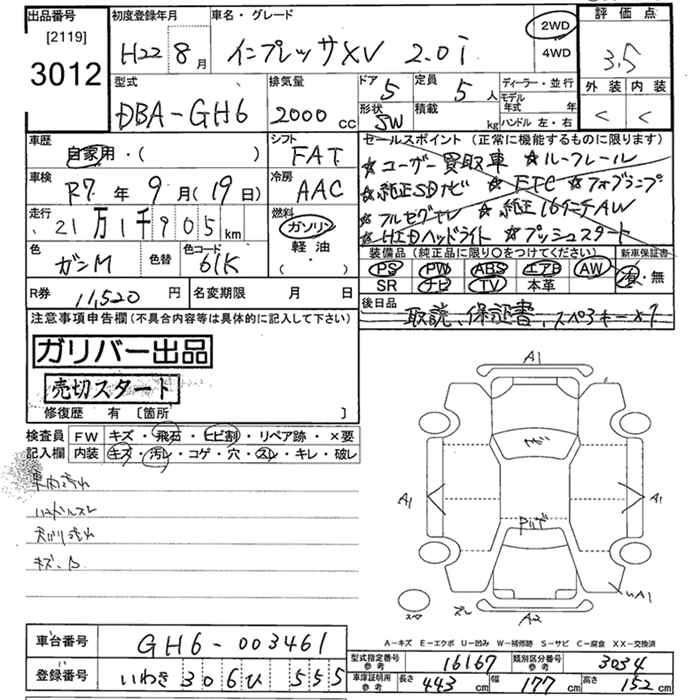 出品番号 初度登録年月 車名・グレード 評価点
[2119] 3012 H22 8月 インプレッサXV 2.0i 2WD 4WD 3.5
外装 内装
型式 排気量 ドア 5 定員 5人 ディーラー・並行
モデル年式 年
DBA-GH6 2000cc 形状 SW 積載 kg ハンドル 左・右
車歴 シフト セールスポイント (正常に機能するものに限ります)
自家用・( ) FAT ★ユーザー買取車 ★ルーフレール
車検 R7年9月(19日) 冷房 AAC ★純正SDナビ ★ETC ★フォグランプ
走行 21万1千905km 燃料 ガソリン 軽油 ・ ★フルセグTV ★純正16インチAW
★HIDヘッドライト ★プッシュスタート
色 ガンM 色替 色コード 61K 装備品 (純正品に限り○をつけてください) 新車保証書
PS PW ABS エアB AW 有・無
SR ナビ TV 本革
R券 11,520円 名変期限 月 日 後日品
取説、保証書、スペアキー×1
注意事項申告欄(不具合内容等は具体的に記入して下さい)
ガリバー出品
売切スタート
修復歴 有 〔箇所 〕
検査員記入欄 FW キズ・飛石・ヒビ割・リペア跡・×要
内装 キズ・汚レ・コゲ・穴・スレ・キレ・破レ
車内汚れ
天張り汚れ
A1
A1
A1
A1
A2
A-キズ E-エクボ U-凹み W-補修跡 S-サビ C-腐食 XX-交換済
車台番号 GH6-003461
型式指定番号 参考 16167 類別区分番号 参考 3034
登録番号 いわき 306 ひ 555
車庫証明用 参考 長さ 443cm 幅 177cm 高さ 152cm